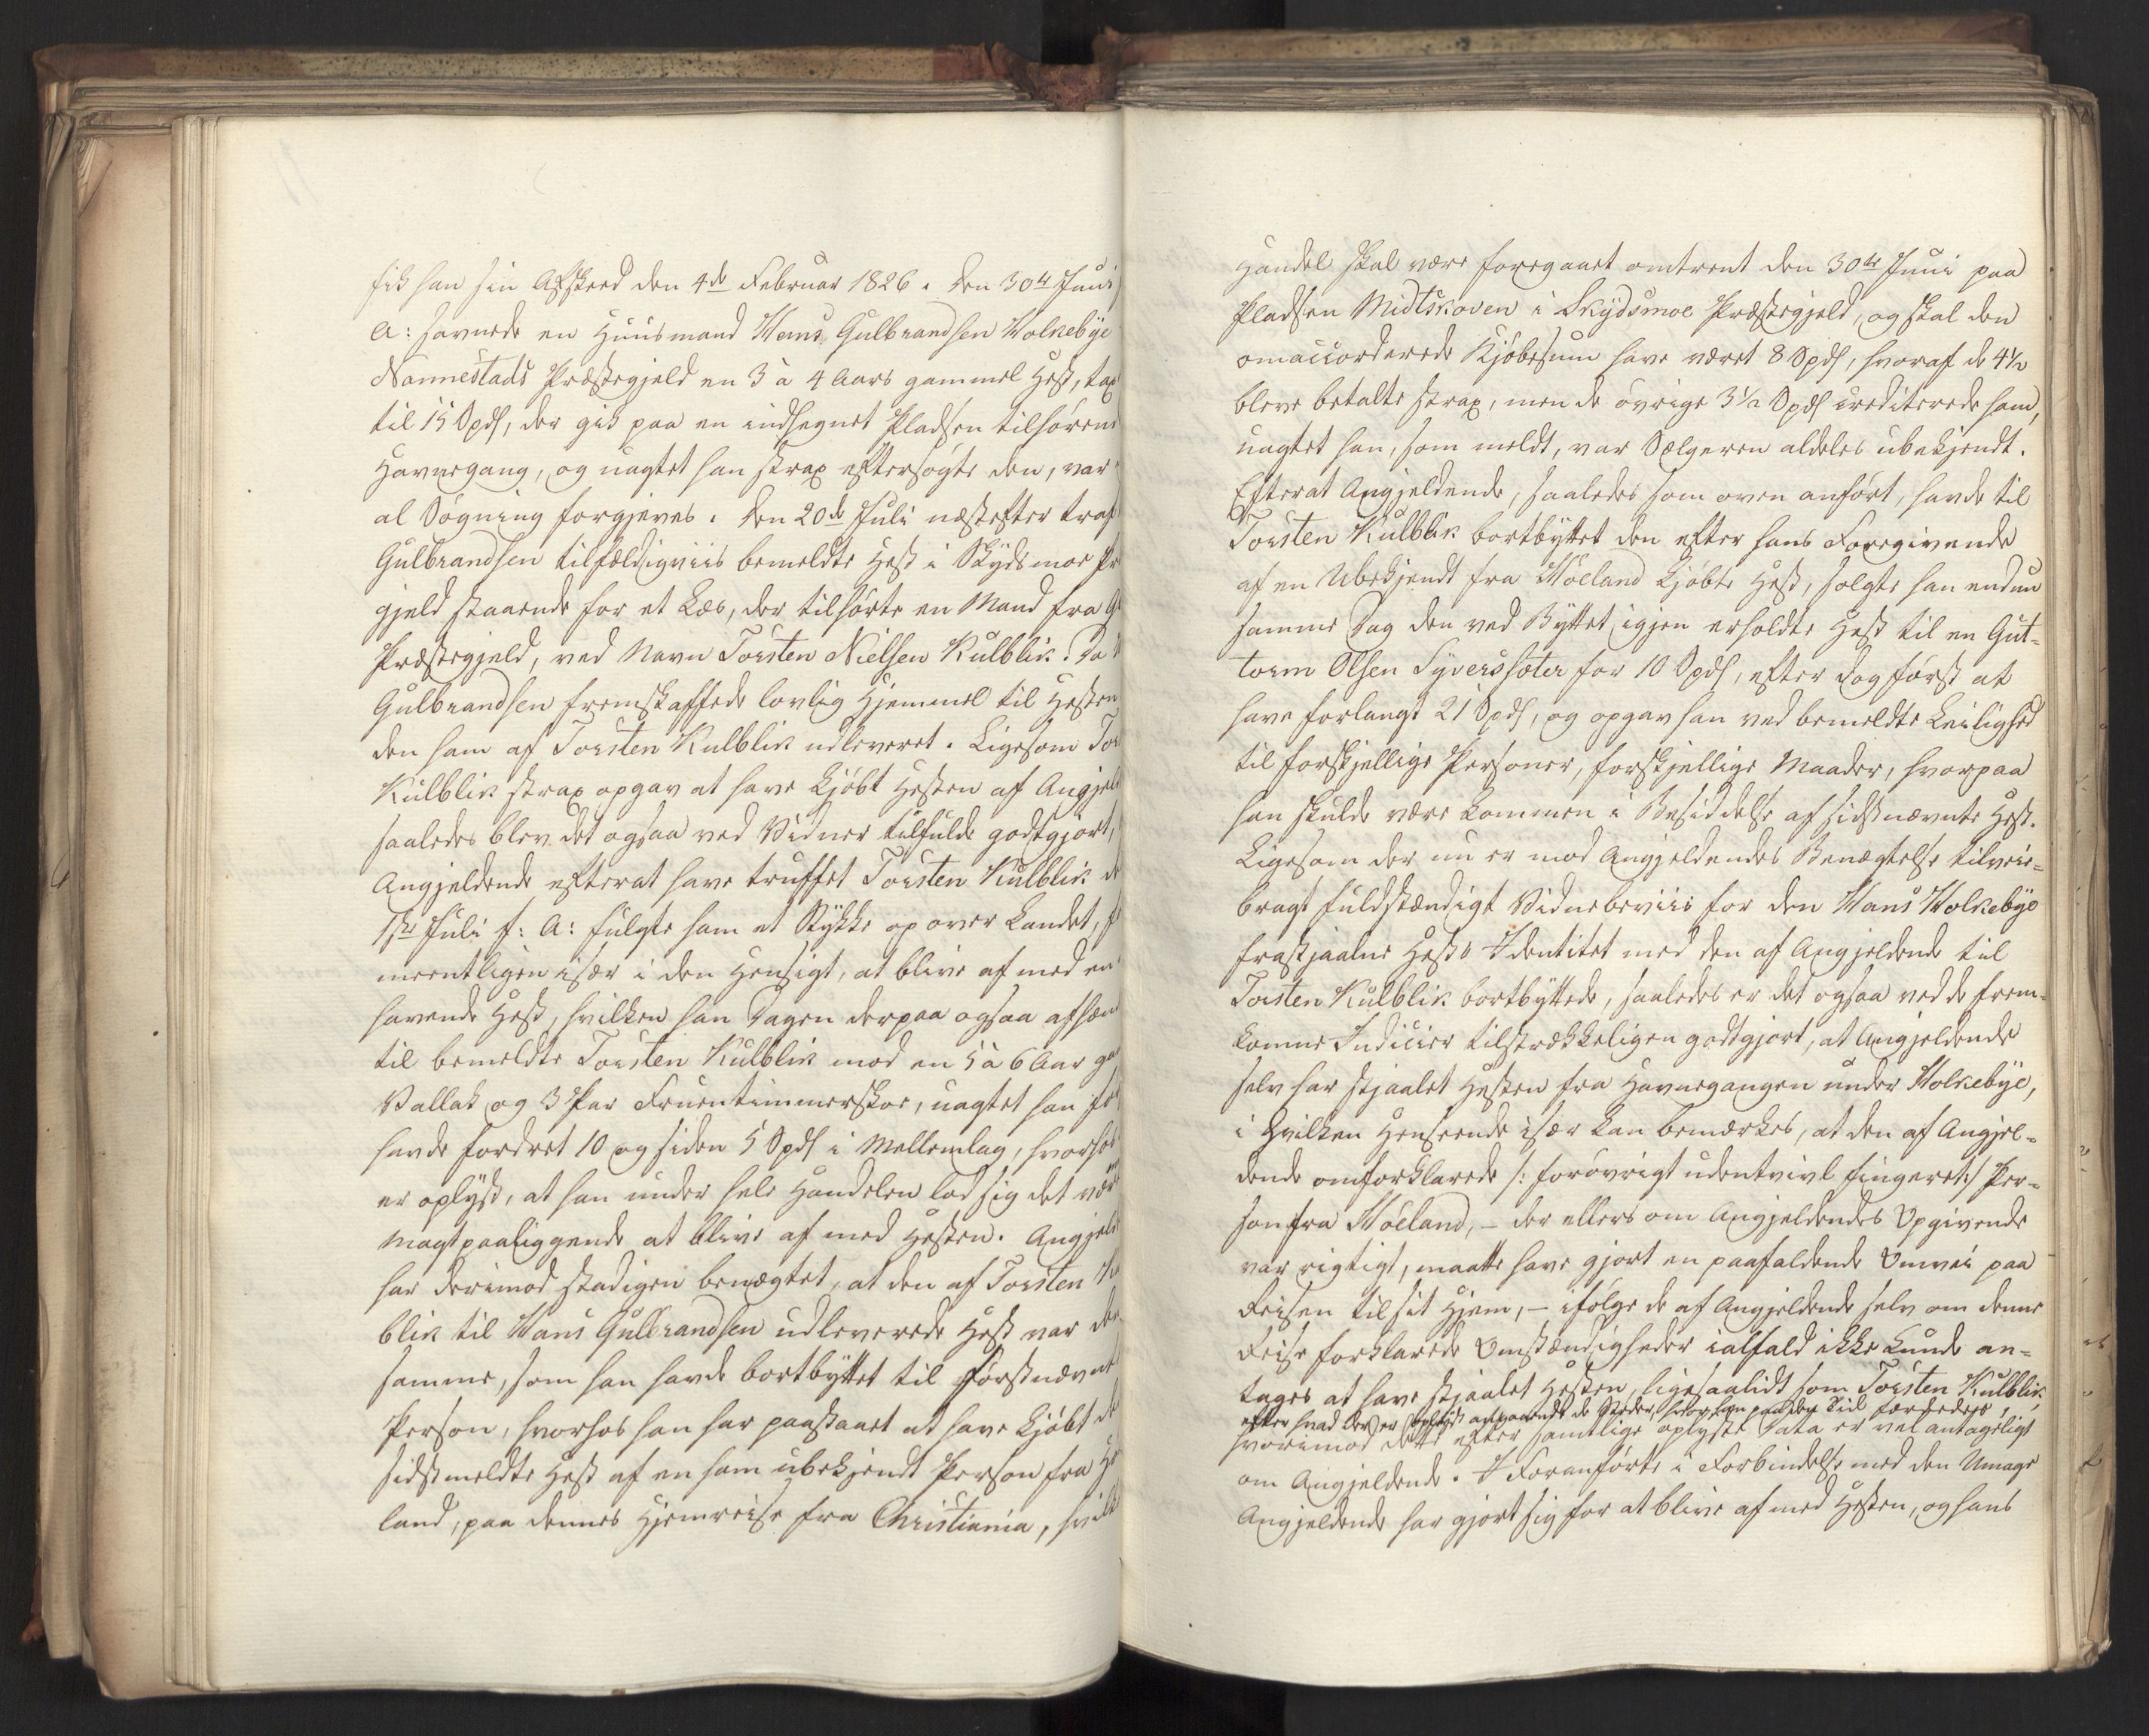 fik han sin Afskeed den 4de Februar 1826. Den 30te Juni
A: savnede en Huusmand Hans Gulbrandsen Holkebÿe
Nannestads Præstegjeld en 3 à 4 Aars gammel Hest, tax
til 15 Spd, der gik paa en indhegnet Pladsen tilhørend
Havnegang, og uagtet han strax eftersøgte den, var
al Søgning forgjeves. Den 20de Juli næstefter traf
Gulbrandsen tilfældigviis bemeldte Hest i Skydsmoe Pr
gjeld staaende for et Læs, der tilhørte en Mand fra G
Præstegjeld, ved Navn Torsten Nielsen Kulblik. Da
Gulbrandsen fremskaffede lovlig Hjemmel til Hesten
den ham af Torsten Kulblik udleveret. Ligesom Tor
Kulblik strax opgav at have kjøbt Hesten af Angjeld
saaledes blev det ogsaa ved Vidner tilfulde godtgjort,
Angjeldende efterat have truffet Torsten Kulblik d
1ste Juli f: A: fulgte ham et Stykke op over Landet, f
meentligen især i den Hensigt, at blive af med en
havende Hest, hvilken han Dagen derpaa ogsaa afhæn
til bemeldte Torsten Kulblik mod en 5 à 6 Aar ga
Vallak og 3 Par Fruentimmerskoe, uagtet han før
havde fordret 10 og siden 5 Spd i Mellemlag, hvorhos
er oplyst, at han under hele Handelen lod sig det være
magtpaaliggende at blive af med Hesten. Angjeld
har derimod stadigen benægtet, at den af Torsten K
blik til Hans Gulbrandsen udleverede Hest var den
samme, som han havde bortbyttet til førstnævnte
Person, hvorhos han har paastaaet at have kjøbt de
sidstmeldte Hest af en ham ubekjendt Person fra Hø
land, paa dennes Hjemreise fra Christiania, hvilk
Handel skal være foregaaet omtrent den 30te Juni paa
Pladsen Midtskoven i Skydsmoe Præstegjeld, og skal den
omaccorderede Kjøbesum have været 8 Spd, hvoraf de 4½
bleve betalte strax, men de øvrige 3½ Spd crediterede ham,
uagtet han, som meldt, var Sælgeren aldeles ubekjendt.
Efterat Angjeldende, saaledes som oven anført, havde til
Torsten Kulblik bortbyttet den efter hans Foregivende
af en Ubekjendt fra Høeland kjøbte Hest, solgte han endnu
samme Dag den ved Byttet igjen erholdte Hest til en Gut-
torm Olsen Syversæter for 10 Spd, efter dog først at
have forlangt 21 Spd, og opgav han ved bemeldte Leilighed
til forskjellige Personer, forskjellige Maader, hvorpaa
han skulde være kommen i Besiddelse af sidstnævnte Hest.
Ligesom der nu er mod Angjeldendes Benægtelse tilveie-
bragt fuldstændigt Vidnebeviis for den Hans Holkebye
frastjaalne Hests Identitet med den af Angjeldende til
Torsten Kulblik bortbyttede, saaledes er det ogsaa ved de frem-
komne Indicier tilstrækkeligen godtgjort, at Angjeldende
selv har stjaalet Hesten fra Havnegangen under Holkebye,
i hvilken Henseende især kan bemærkes, at den af Angjel-
dende omforklarede /: forøvrigt udentvivl fingeret :/ Per-
son fra Høeland, – der ellers om Angjeldendes Opgivende
var rigtigt, maatte have gjort en paafaldende Omvei paa
Reisen til sit Hjem, – ifølge de af Angjeldende selv om denne
Reise forklarede Omstændigheder ialfald ikke kunde an-
tages at have stjaalet Hesten, ligesaalidt som Torsten Kulblik,
efter hvad der er oplyst angaaende de Steder, hvor han paa den Tid færdedes,
hvorimod dette efter samtlige oplyste Data er vel antageligt
om Angjeldende. I Foranførte i Forbindelse med den Umage
Angjeldende har gjort sig for at blive af med Hesten, og hans